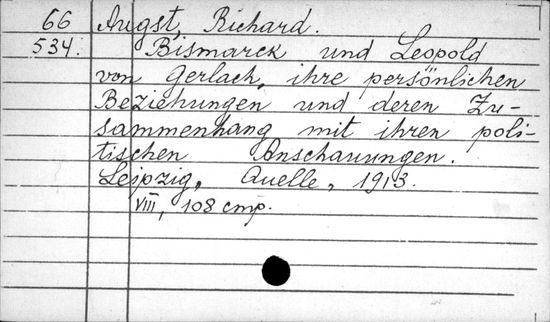 66 Augst, Richard.
534. Bismarck und Leopold
von Gerlach, ihre persönlichen
Beziehungen und deren Zu-
sammenhang mit ihren poli-
tischen Anschauungen.
Leipzig, Quelle, 1913.
VIII, 108 стр.